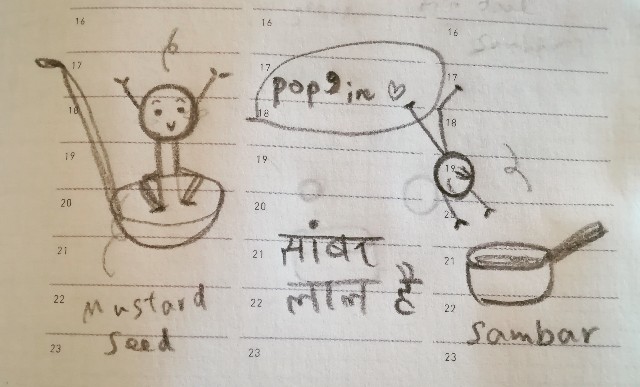 16 16 16
17 17 17
pop2 in ♡
18 18 18
19 19 19
20 20 20
21 सांबर 21
22 लाल है 22
Mustard
Seed
Sambar
23 23 23